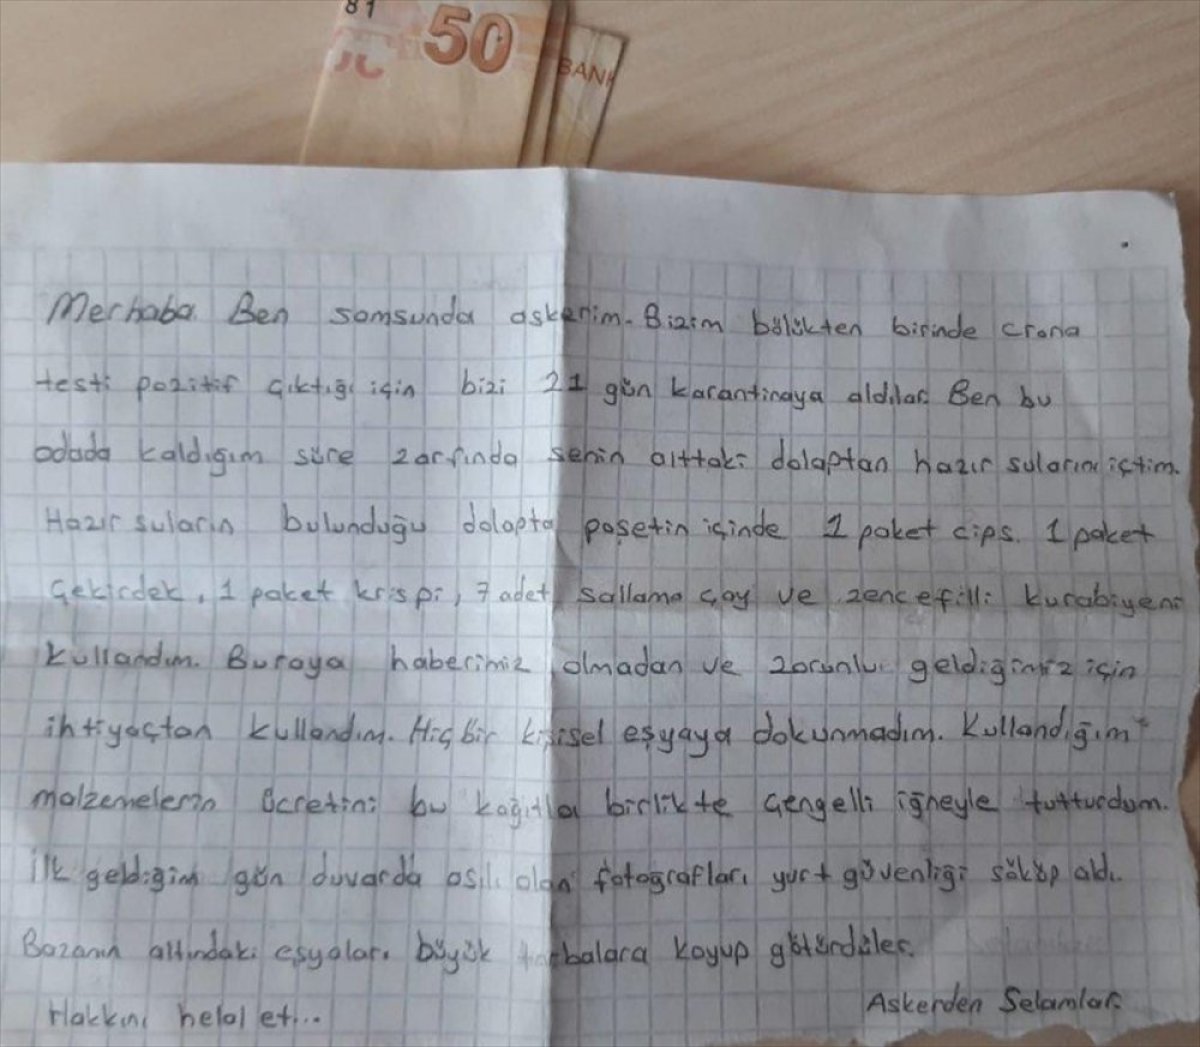 81
50
BANK
Merhaba. Ben samsunda askerim. Bizim bölükten birinde crona
testi pozitif çıktığı için bizi 21 gün karantinaya aldılar. Ben bu
odada kaldığım süre zarfında senin alttaki dolaptan hazır sularını içtim.
Hazır suların bulunduğu dolapta poşetin içinde 1 paket cips. 1 paket
çekirdek, 1 paket krispi, 7 adet sallama çay ve zencefilli kurabiyeni
kullandım. Buraya haberimiz olmadan ve zorunlu geldiğimiz için
ihtiyaçtan kullandım. Hiçbir kişisel eşyaya dokunmadım. Kullandığım
malzemelerin ücretini bu kağıtla birlikte çengelli iğneyle tutturdum.
İlk geldiğim gün duvarda asılı olan fotografları yurt güvenliği söküp aldı.
Bazanın altındaki eşyaları büyük torbalara koyup götürdüler.
Hakkını helal et...
Askerden Selamlar.